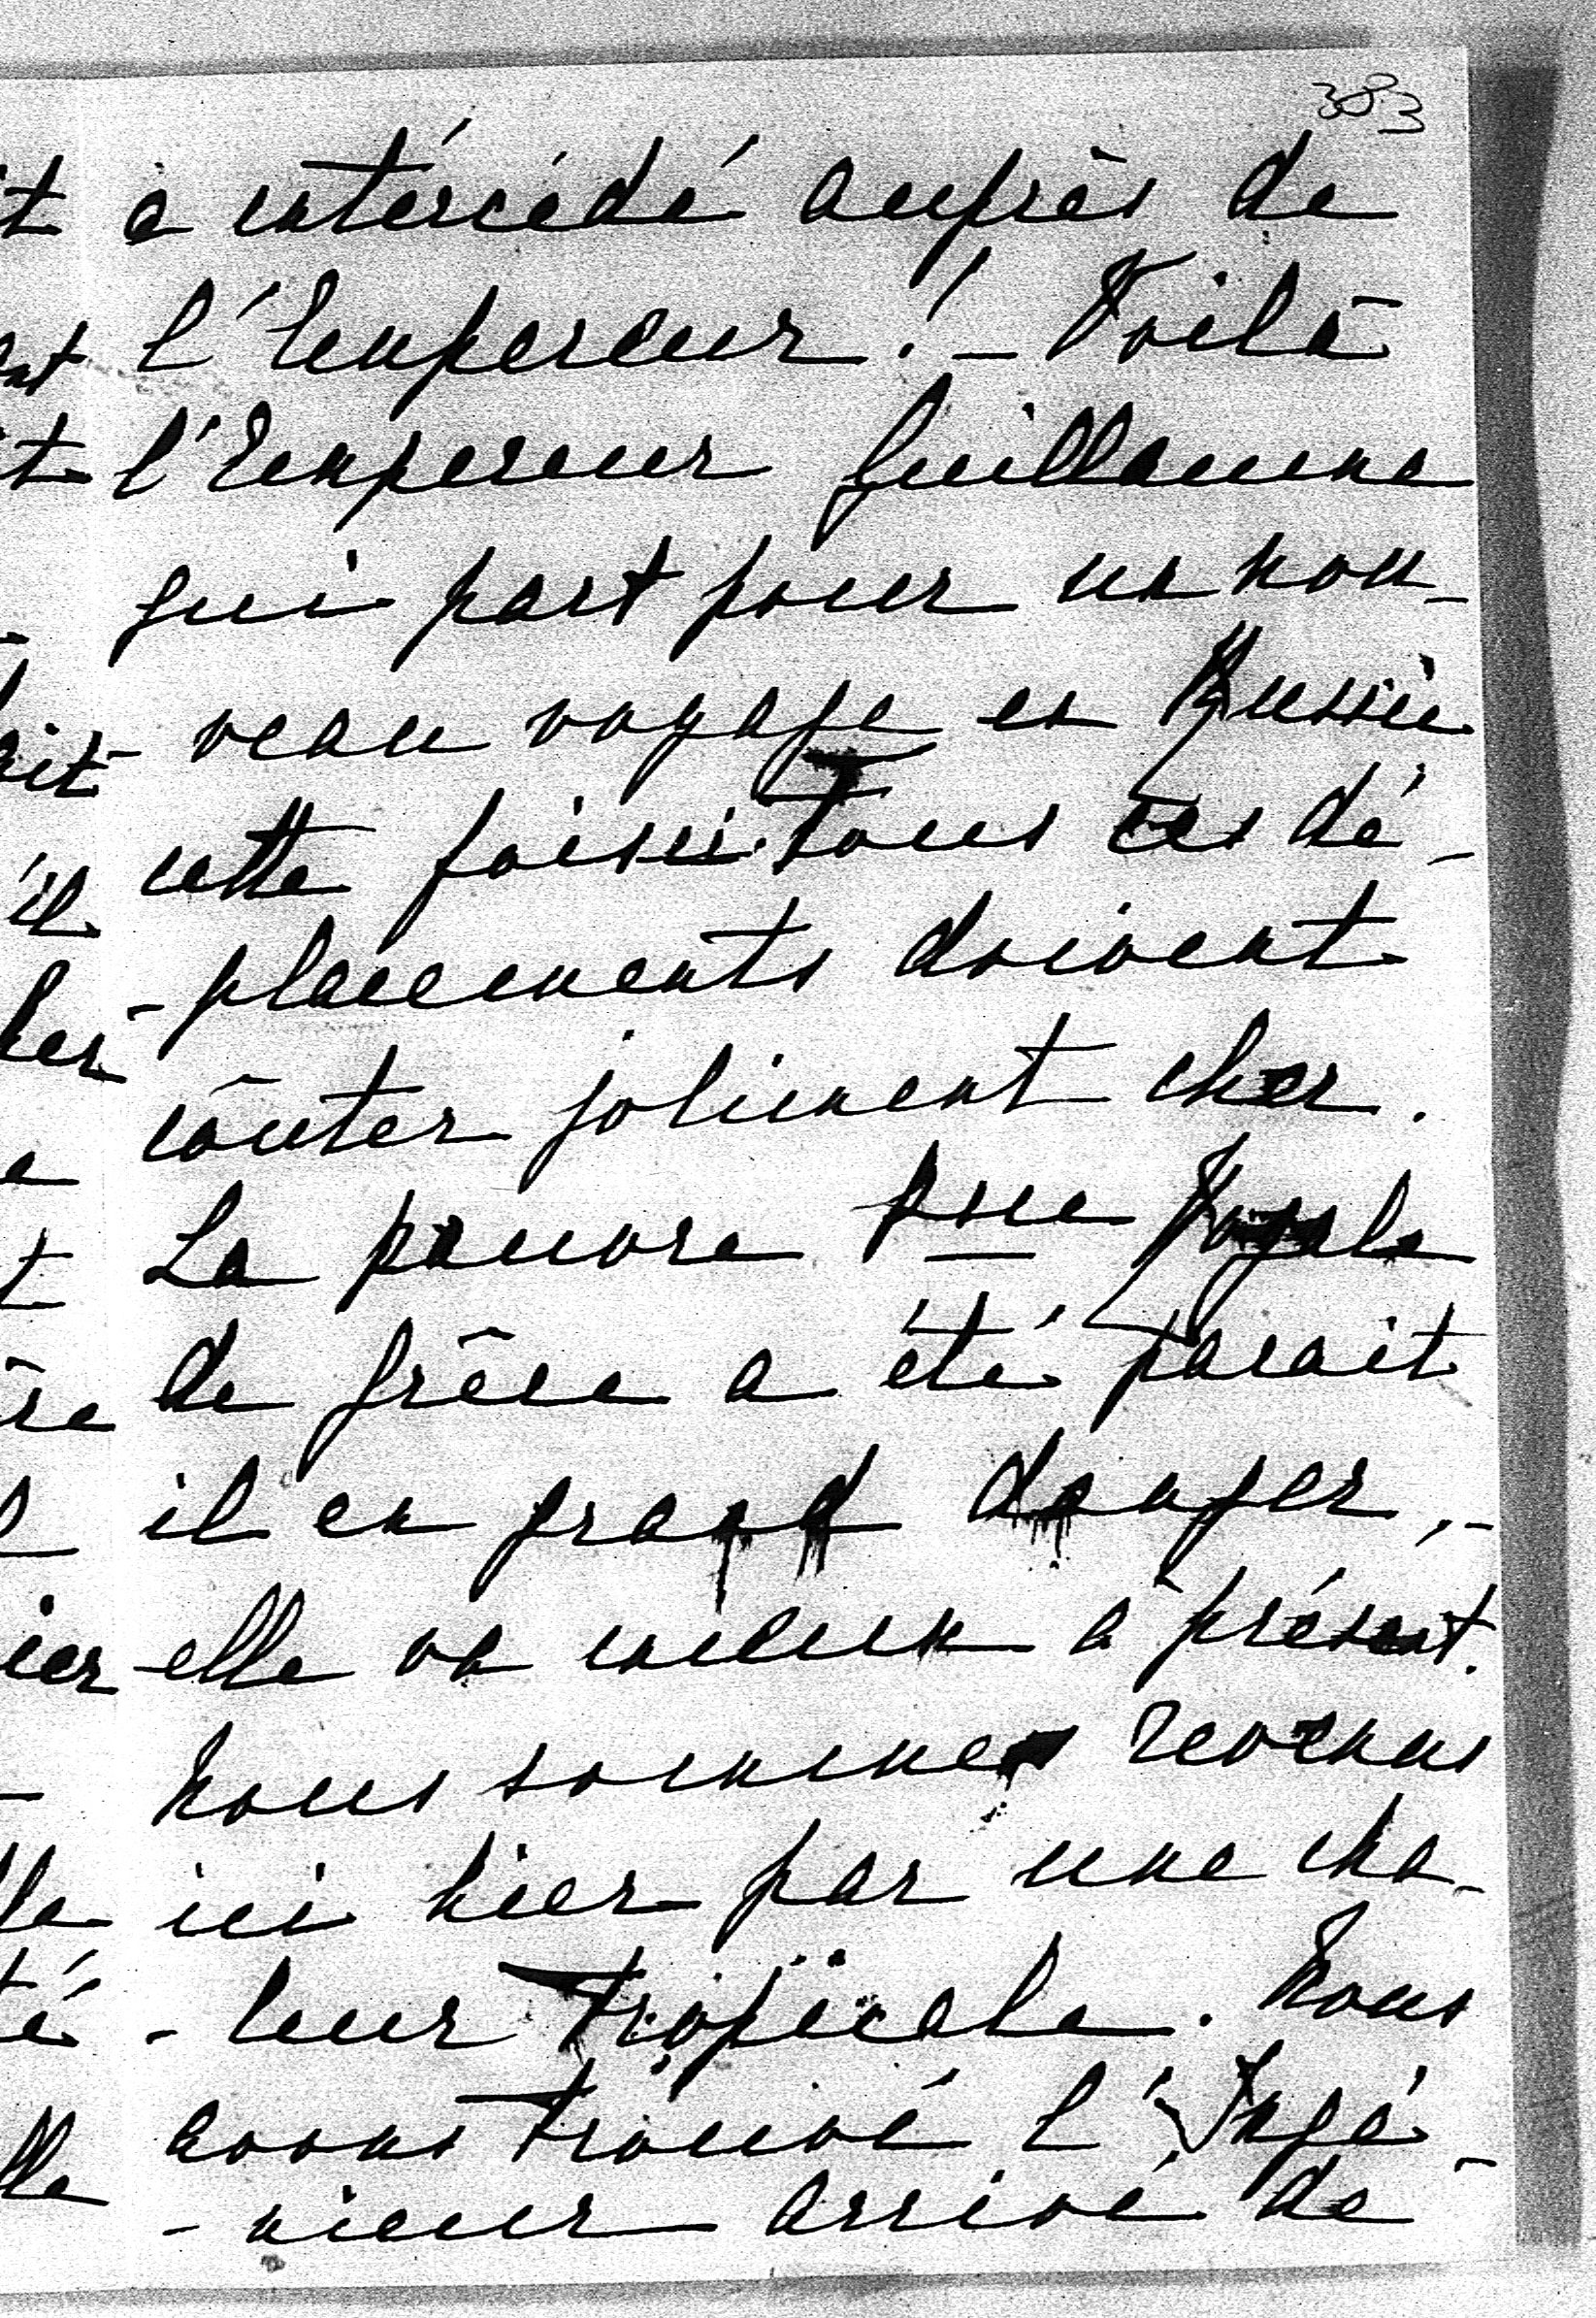 383
a intercédé auprès de
l'Empereur! – Voilà
l'Empereur Guillaume
qui part pour un nou-
veau voyage en Russie
cette fois-ci. Tous ces dé-
-placements doivent
coûter joliment cher.
La pauvre Psse Royale
de Grèce a été parait
il en grand danger, –
elle va mieux à présent.
Nous sommes revenus
ici hier par une cha-
-leur tropicale. Nous
avons trouvé l'Ingé-
-nieur arrivé de